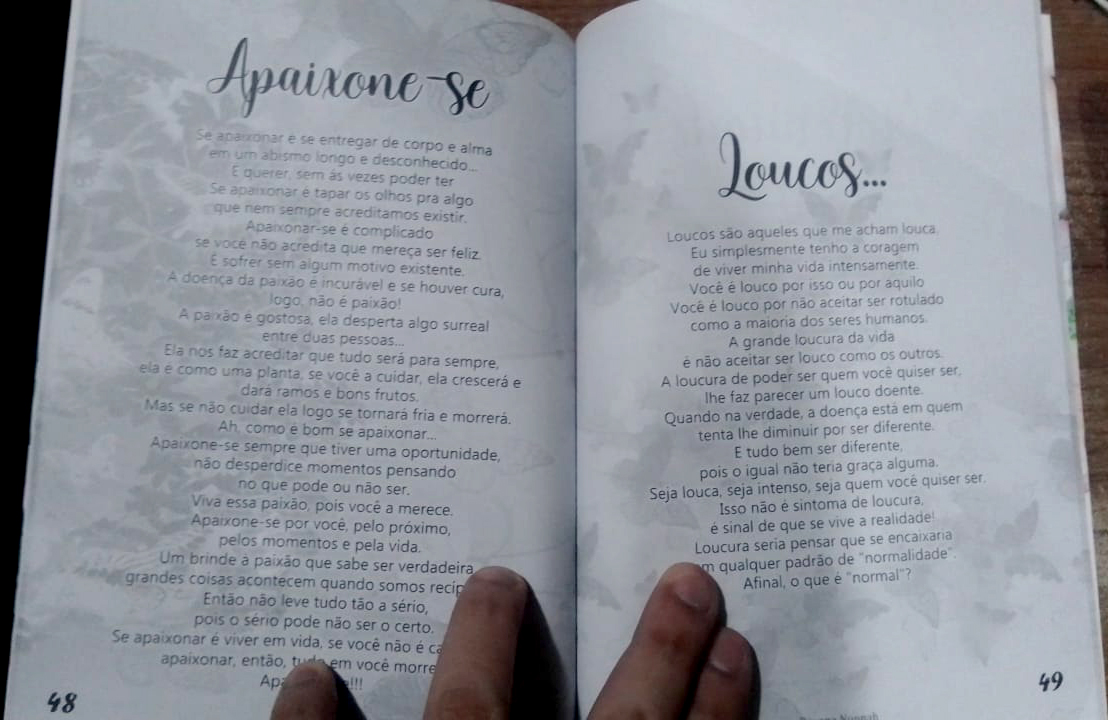 Apaixone-se
Se apaixonar e se entregar de corpo e alma
em um abismo longo e desconhecido...
É querer, sem às vezes poder ter
Se apaixonar é tapar os olhos pra algo
que nem sempre acreditamos existir.
Apaixonar-se é complicado
se você não acredita que mereça ser feliz.
É sofrer sem algum motivo existente.
A doença da paixão é incurável e se houver cura,
logo, não é paixão!
A paixão é gostosa, ela desperta algo surreal
entre duas pessoas...
Ela nos faz acreditar que tudo será para sempre,
ela é como uma planta, se você a cuidar, ela crescerá e
dará ramos e bons frutos.
Mas se não cuidar ela logo se tornará fria e morrerá.
Ah, como é bom se apaixonar...
Apaixone-se sempre que tiver uma oportunidade,
não desperdice momentos pensando
no que pode ou não ser.
Viva essa paixão, pois você a merece.
Apaixone-se por você, pelo próximo,
pelos momentos e pela vida.
Um brinde à paixão que sabe ser verdadeira,
grandes coisas acontecem quando somos
Então não leve tudo tão a sério,
pois o sério pode não ser o certo.
Se apaixonar é viver em vida, se você não é
apaixonar, então, em você
48
Loucos...
Loucos são aqueles que me acham louca.
Eu simplesmente tenho a coragem
de viver minha vida intensamente.
Você é louco por isso ou por aquilo
Você é louco por não aceitar ser rotulado
como a maioria dos seres humanos.
A grande loucura da vida
é não aceitar ser louco como os outros.
A loucura de poder ser quem você quiser ser,
lhe faz parecer um louco doente.
Quando na verdade, a doença está em quem
tenta lhe diminuir por ser diferente.
E tudo bem ser diferente,
pois o igual não teria graça alguma.
Seja louca, seja intenso, seja quem você quiser ser.
Isso não é sintoma de loucura,
é sinal de que se vive a realidade!
Loucura seria pensar que se encaixaria
qualquer padrão de "normalidade".
Afinal, o que é "normal"?
49